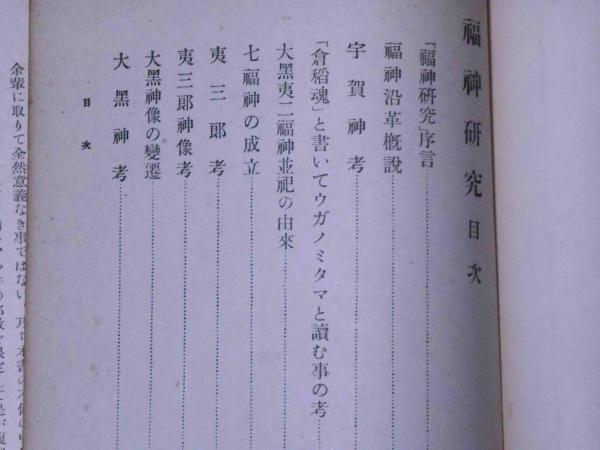 福神研究 目次
「福神硏究」序言
福神沿革概說
宇賀神考
「倉稻魂」と書いてウガノミタマと讀む事の考
大黑夷二福神並祀の由來
七福神の成立
夷三郞考
夷三郞神像考
大黑神像の變遷
大黑神考
目次
余輩に取りて全然意義なき事ではない